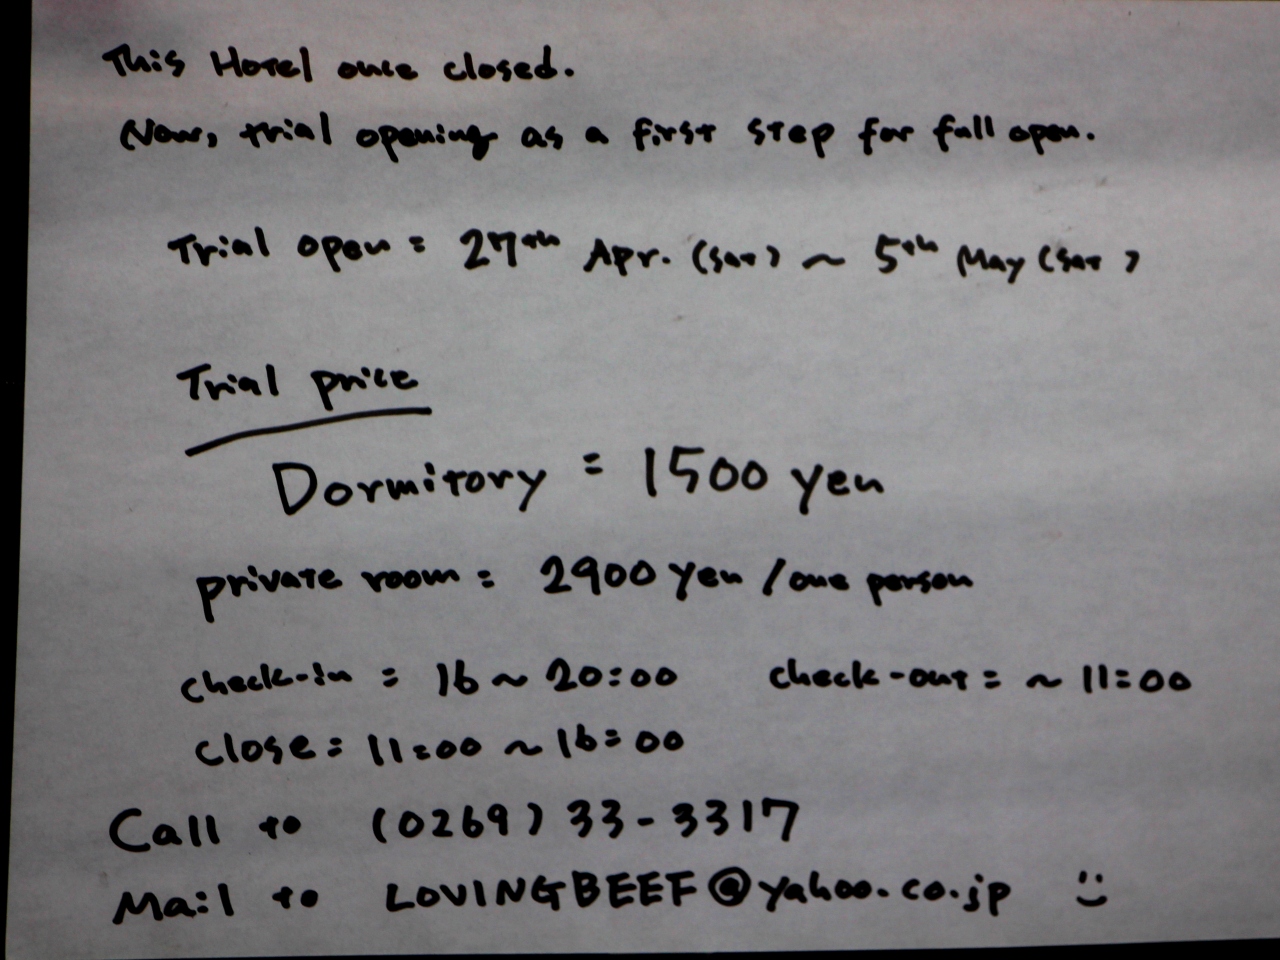 This Hotel once closed.
Now, trial opening as a first step for full open.
Trial open = 27th Apr. (Sat) ~ 5th May (Sat)
Trial price
Dormitory = 1500 yen
private room = 2900 yen / one person
check-in = 16 ~ 20:00 check-out = ~ 11:00
close = 11:00 ~ 16:00
Call to (0269) 33-3317
Mail to LOVINGBEEF@yahoo.co.jp